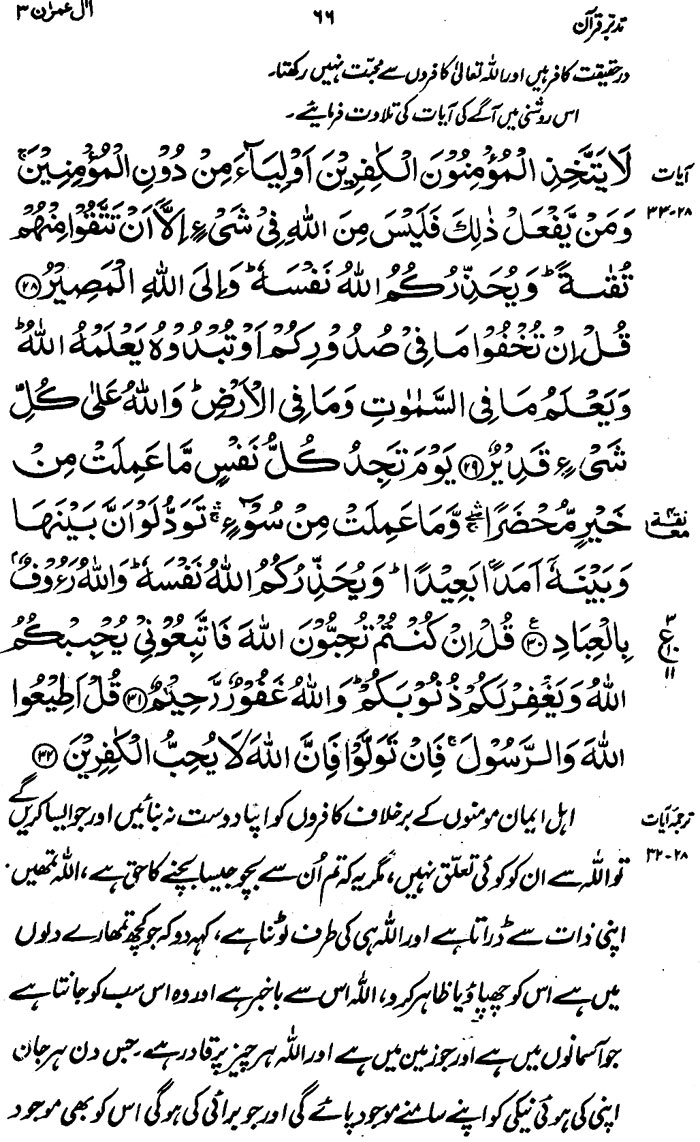 تدبر قرآن ۶۶ اٰل عمرٰن ۳
درحقیقت کافر ہیں اور اللہ تعالیٰ کافروں سے محبت نہیں رکھتا۔
اس روشنی میں آگے کی آیات کی تلاوت فرمائیے۔
آیات
۲۸-۳۳
لَا يَتَّخِذِ الْمُؤْمِنُوْنَ الْكٰفِرِيْنَ اَوْلِيَآءَ مِنْ دُوْنِ الْمُؤْمِنِيْنَ ۚ
وَمَنْ يَّفْعَلْ ذٰلِكَ فَلَيْسَ مِنَ اللّٰهِ فِيْ شَيْءٍ اِلَّآ اَنْ تَتَّقُوْا مِنْهُمْ
تُقٰىةً ؕ وَيُحَذِّرُكُمُ اللّٰهُ نَفْسَهٗ ؕ وَاِلَى اللّٰهِ الْمَصِيْرُ ﴿۲۸﴾
قُلْ اِنْ تُخْفُوْا مَا فِيْ صُدُوْرِكُمْ اَوْ تُبْدُوْهُ يَعْلَمْهُ اللّٰهُ ؕ
وَيَعْلَمُ مَا فِي السَّمٰوٰتِ وَمَا فِي الْاَرْضِ ؕ وَاللّٰهُ عَلٰى كُلِّ
شَيْءٍ قَدِيْرٌ ﴿۲۹﴾ يَوْمَ تَجِدُ كُلُّ نَفْسٍ مَّا عَمِلَتْ مِنْ
خَيْرٍ مُّحْضَرًا ۛۚ وَّمَا عَمِلَتْ مِنْ سُوْٓءٍ ۛۚ تَوَدُّ لَوْ اَنَّ بَيْنَهَا
وَبَيْنَهٗٓ اَمَدًۢا بَعِيْدًا ؕ وَيُحَذِّرُكُمُ اللّٰهُ نَفْسَهٗ ؕ وَاللّٰهُ رَءُوْفٌۢ
بِالْعِبَادِ ﴿۳۰﴾ قُلْ اِنْ كُنْتُمْ تُحِبُّوْنَ اللّٰهَ فَاتَّبِعُوْنِيْ يُحْبِبْكُمُ
اللّٰهُ وَيَغْفِرْ لَكُمْ ذُنُوْبَكُمْ ؕ وَاللّٰهُ غَفُوْرٌ رَّحِيْمٌ ﴿۳۱﴾ قُلْ اَطِيْعُوا
اللّٰهَ وَالرَّسُوْلَ ۚ فَاِنْ تَوَلَّوْا فَاِنَّ اللّٰهَ لَا يُحِبُّ الْكٰفِرِيْنَ ﴿۳۲﴾
ترجمۂ آیات
۲۸-۳۲
اہل ایمان مومنوں کے برخلاف کافروں کو اپنا دوست نہ بنائیں اور جو ایسا کریں گے
تو اللہ سے ان کو کوئی تعلق نہیں، مگر یہ کہ تم اُن سے بچو جیسا بچنے کا حق ہے، اللہ تمھیں
اپنی ذات سے ڈراتا ہے اور اللہ ہی کی طرف لوٹنا ہے، کہہ دو کہ جو کچھ تمھارے دلوں
میں ہے اس کو چھپاؤ یا ظاہر کرو، اللہ اس سے باخبر ہے اور وہ اس سب کو جانتا ہے
جو آسمانوں میں ہے اور جو زمین میں ہے اور اللہ ہر چیز پر قادر ہے۔ جس دن ہر جان
اپنی کی ہوئی نیکی کو اپنے سامنے موجود پائے گی اور جو برائی کی ہوگی اس کو بھی موجود